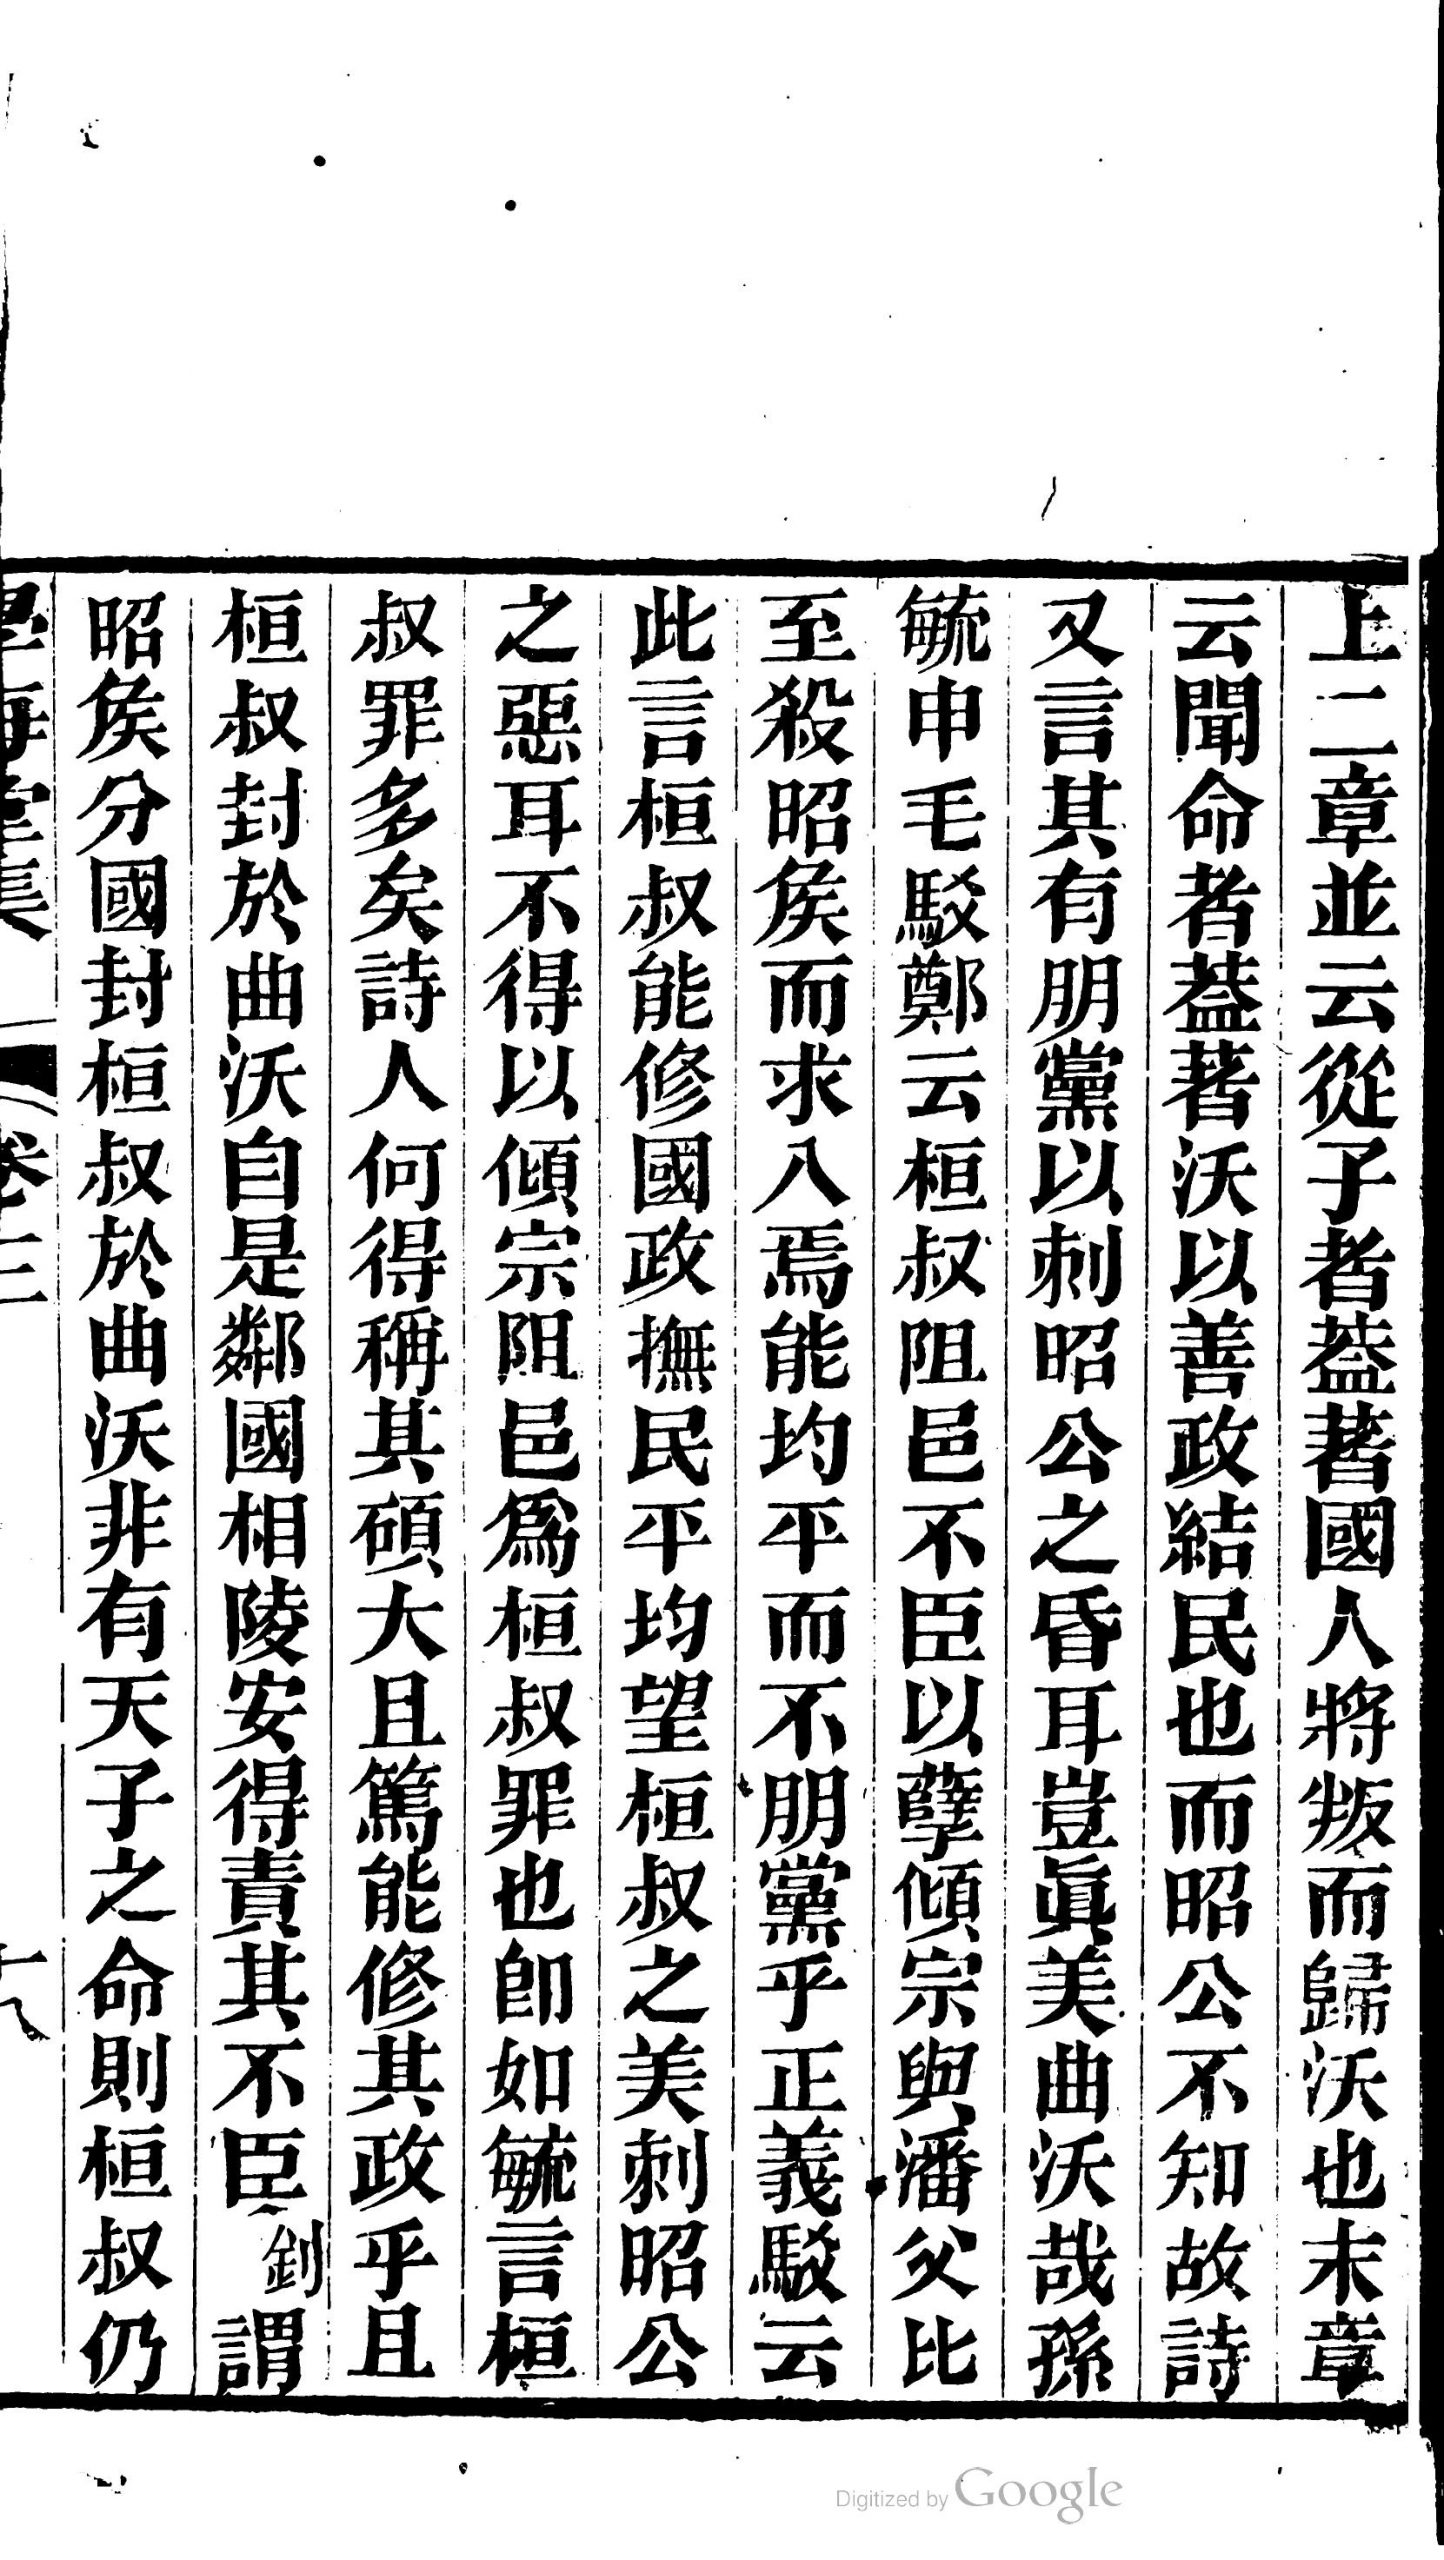 上二章並云從子者葢著國人將叛而歸沃也末章
云聞命者葢著沃以善政結民也而昭公不知故詩
又言其有朋黨以刺昭公之昏耳豈眞美曲沃哉孫
毓申毛駁鄭云桓叔阻邑不臣以孽傾宗與潘父比
至殺昭侯而求入焉能均平而不朋黨乎正義駁云
此言桓叔能修國政撫民平均望桓叔之美刺昭公
之惡耳不得以傾宗阻邑爲桓叔罪也卽如毓言桓
叔罪多矣詩人何得稱其碩大且篤能修其政乎且
桓叔封於曲沃自是鄰國相陵安得責其不臣釗謂
昭侯分國封桓叔於曲沃非有天子之命則桓叔仍
學海堂集 卷三 十八
Digitized by Google